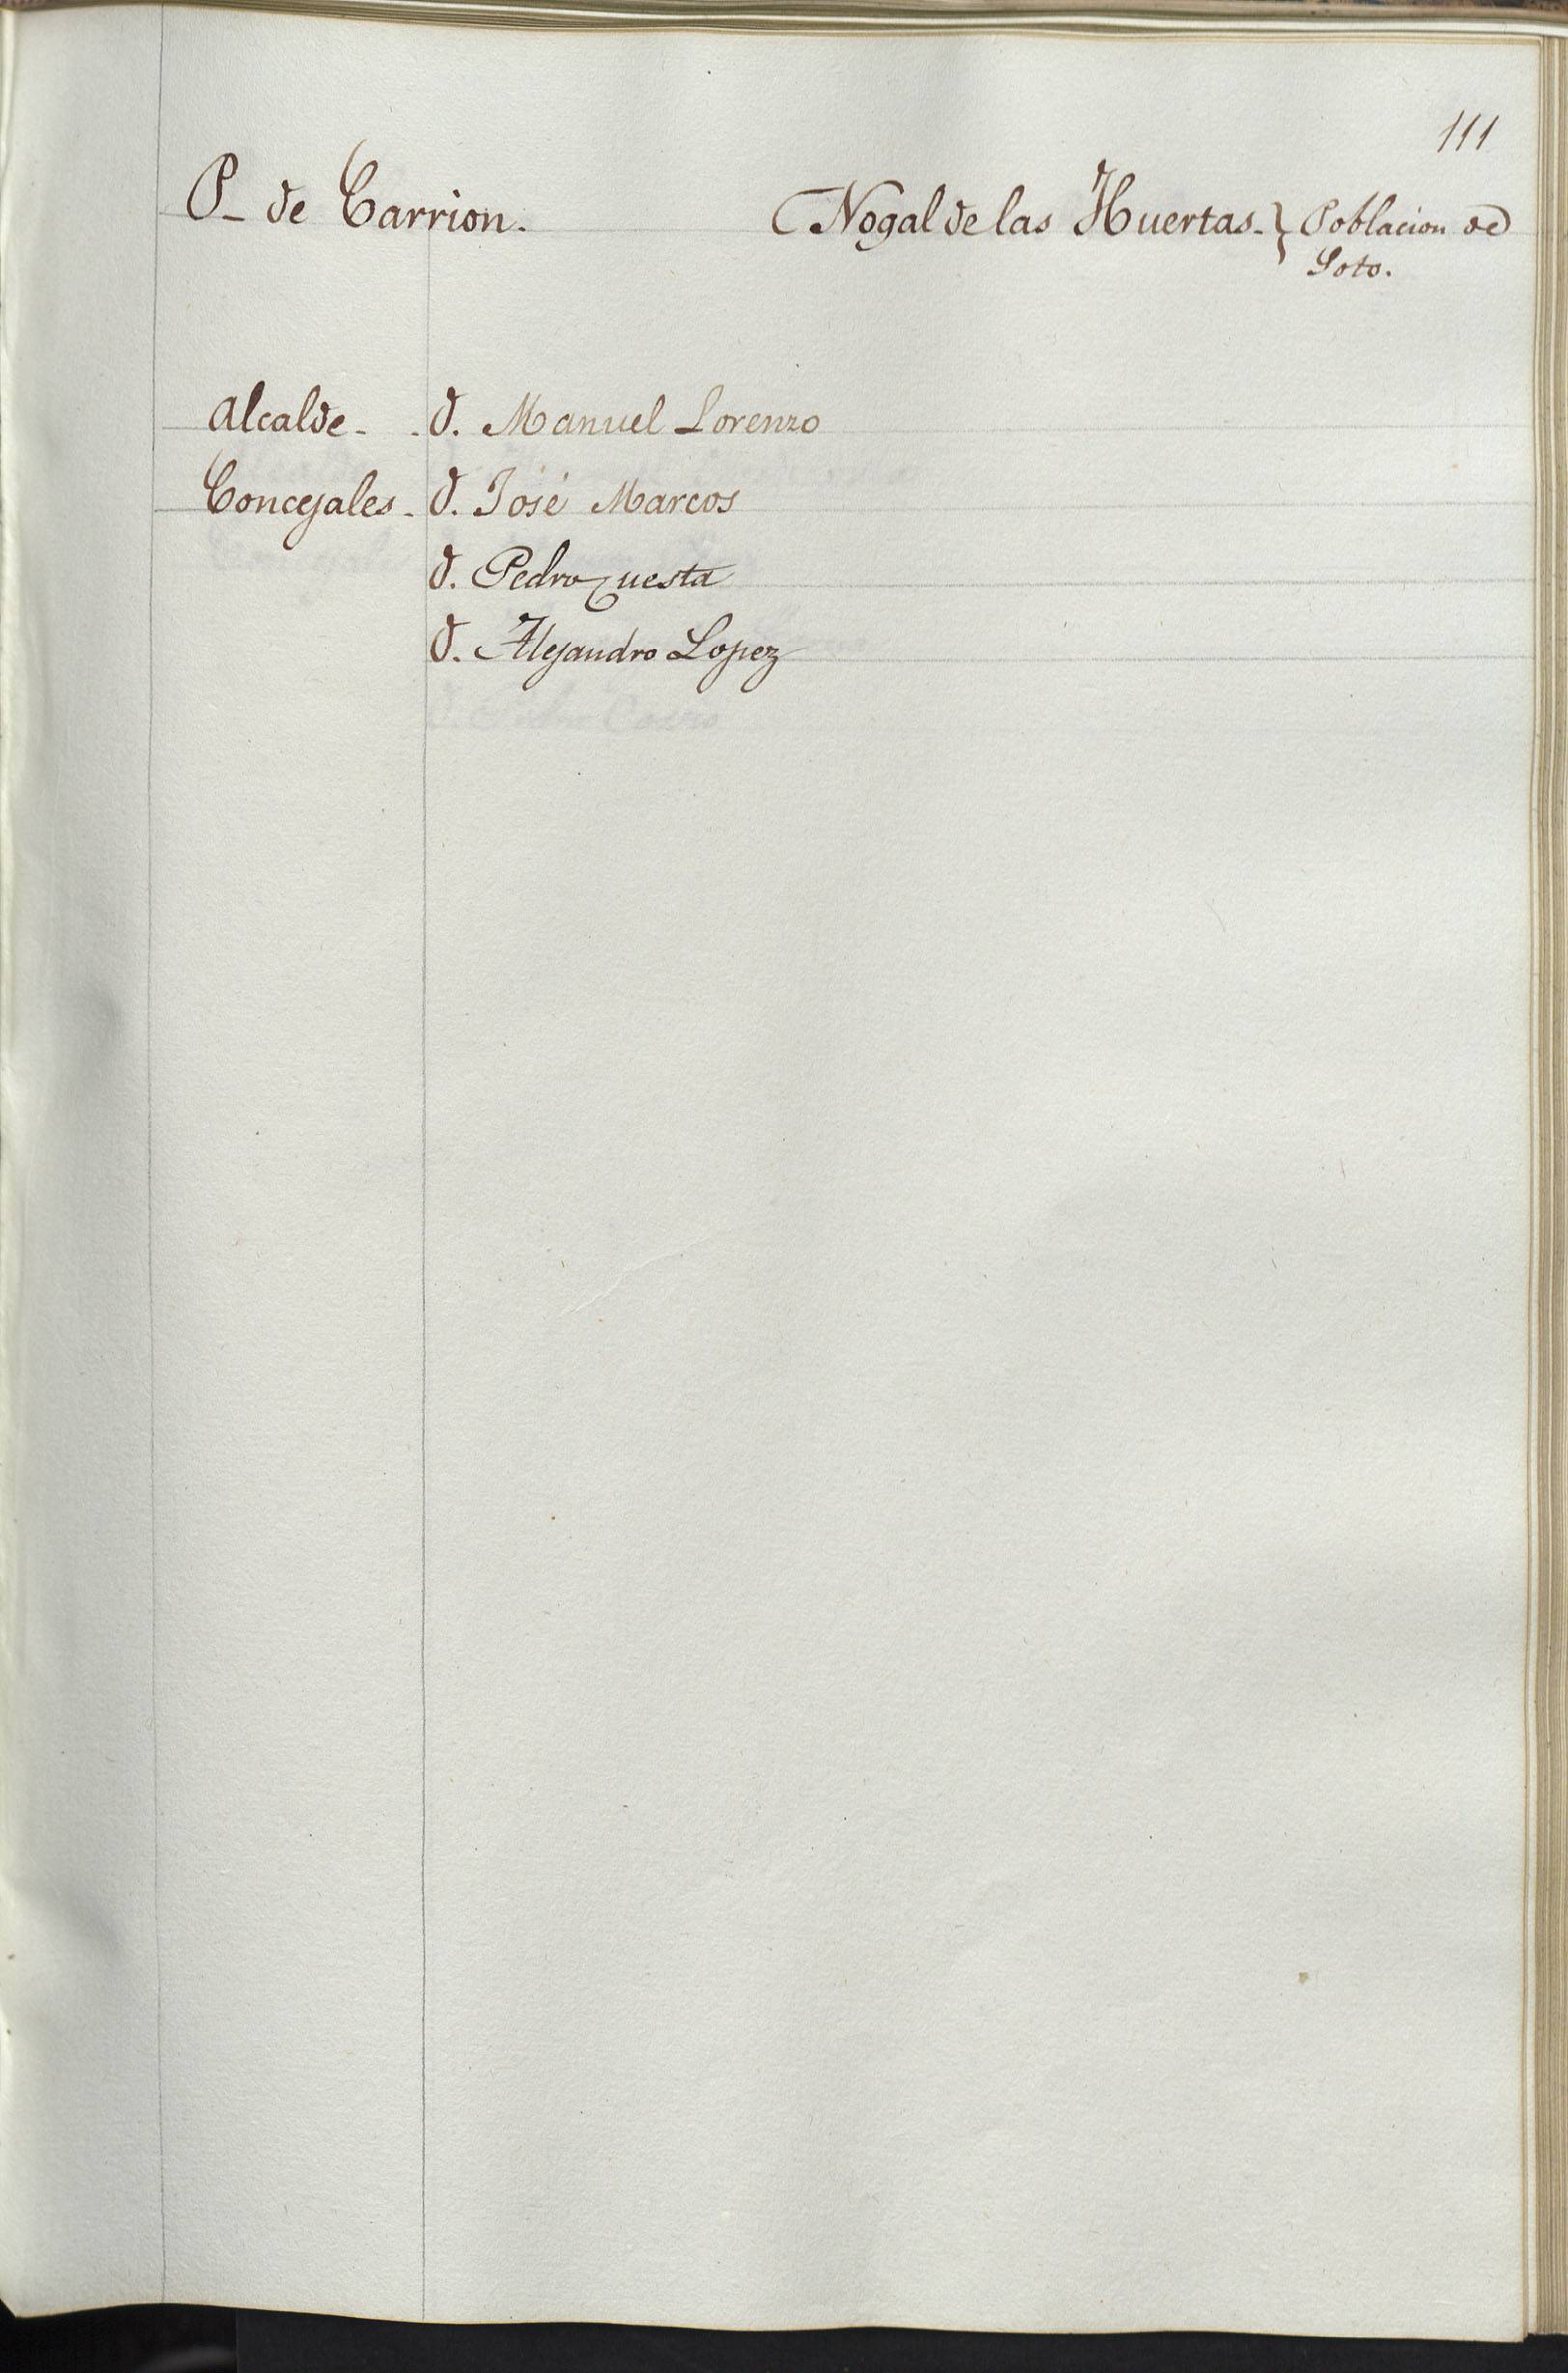 111
P- de Carrion. Nogal de las Huertas. } Poblacion de
Soto.
Alcalde - - D. Manuel Lorenzo
Concejales - D. José Marcos
D. Pedro Cuesta
D. Alejandro Lopez